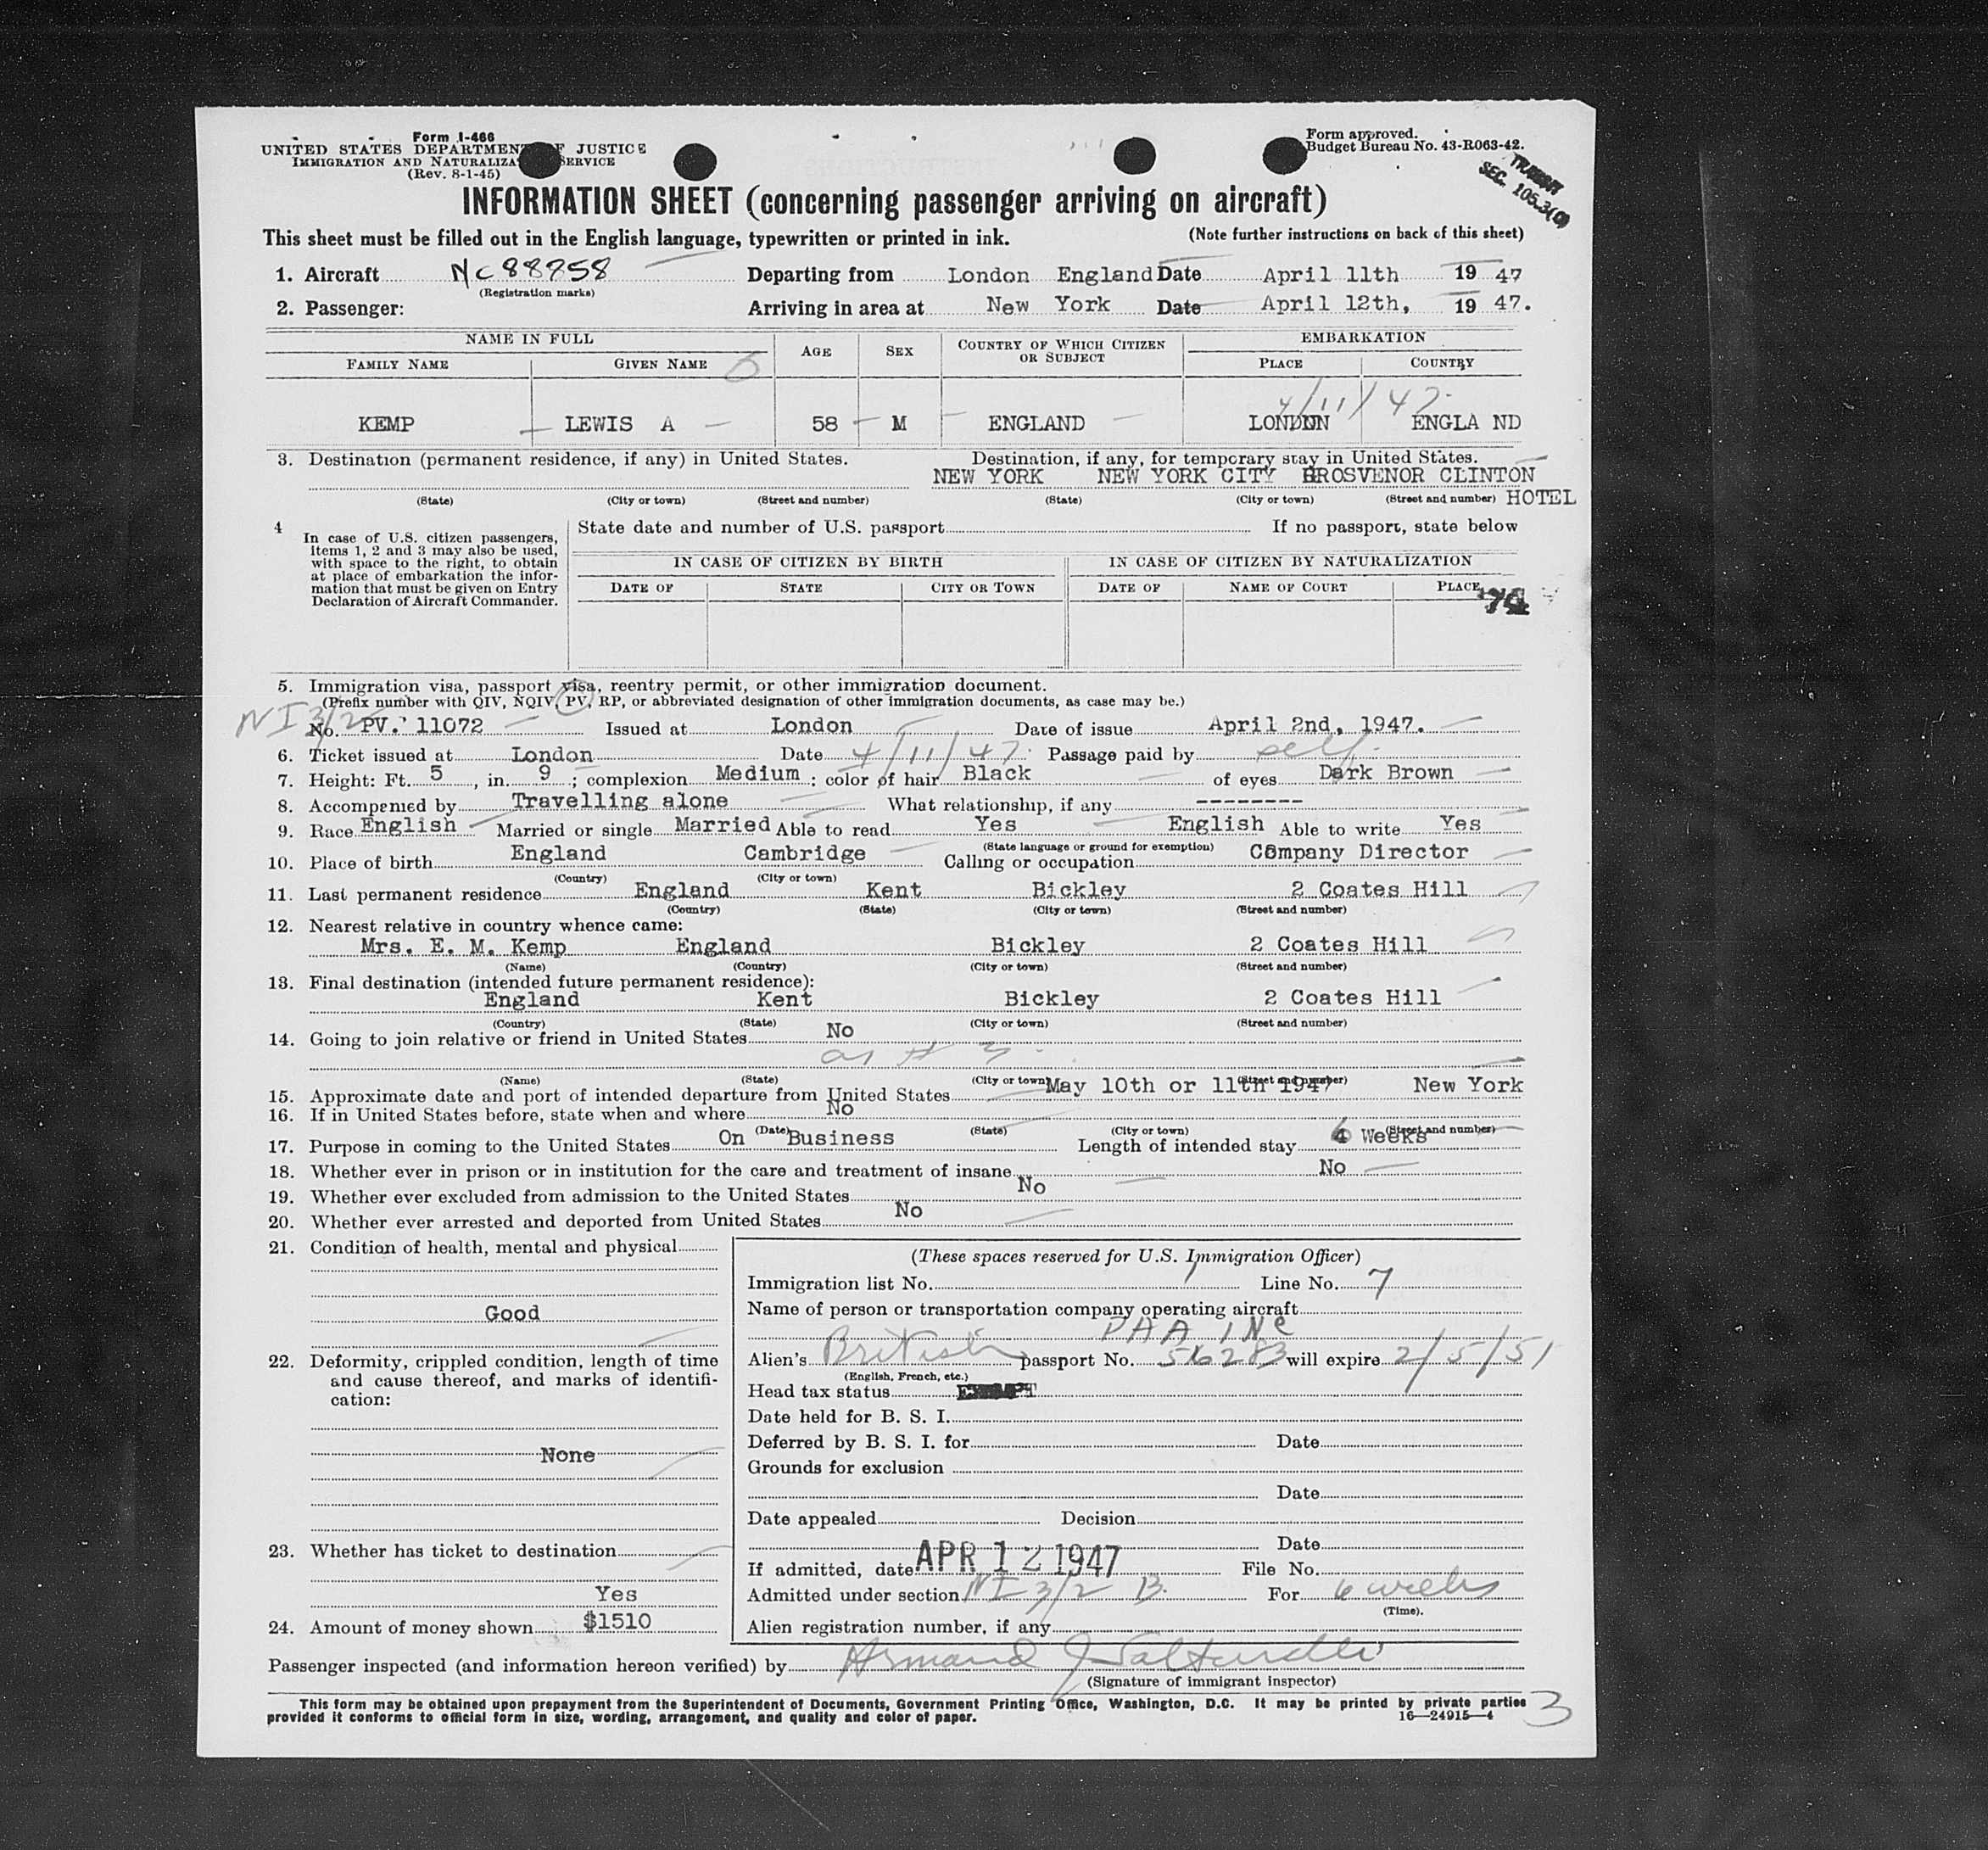 Form I-466
UNITED STATES DEPARTMENT OF JUSTICE
IMMIGRATION AND NATURALIZATION SERVICE
(Rev. 8-1-45)
Form approved.
Budget Bureau No. 43-R063-42.
TRANSIT
SEC. 105.3(c)
INFORMATION SHEET (concerning passenger arriving on aircraft)
This sheet must be filled out in the English language, typewritten or printed in ink. (Note further instructions on back of this sheet)
1. Aircraft NC 88858 Departing from London England Date April 11th 19 47
(Registration marks)
2. Passenger: Arriving in area at New York Date April 12th, 19 47.
NAME IN FULL AGE SEX COUNTRY OF WHICH CITIZEN OR SUBJECT EMBARKATION
FAMILY NAME GIVEN NAME PLACE COUNTRY
4/11/47
KEMP LEWIS A 58 M ENGLAND LONDON ENGLA ND
3. Destination (permanent residence, if any) in United States. Destination, if any, for temporary stay in United States.
NEW YORK NEW YORK CITY GROSVENOR CLINTON
(State) (City or town) (Street and number) (State) (City or town) (Street and number) HOTEL
4 In case of U.S. citizen passengers, items 1, 2 and 3 may also be used, with space to the right, to obtain at place of embarkation the information that must be given on Entry Declaration of Aircraft Commander.
State date and number of U.S. passport If no passport, state below
IN CASE OF CITIZEN BY BIRTH IN CASE OF CITIZEN BY NATURALIZATION
DATE OF STATE CITY OR TOWN DATE OF NAME OF COURT PLACE
5. Immigration visa, passport visa, reentry permit, or other immigration document.
(Prefix number with QIV, NQIV, PV, RP, or abbreviated designation of other immigration documents, as case may be.)
NI 3/2
No. PV. 11072 Issued at London Date of issue April 2nd, 1947.
6. Ticket issued at London Date 4/11/47. Passage paid by self.
7. Height: Ft. 5, in. 9; complexion Medium; color of hair Black of eyes Dark Brown
8. Accompanied by Travelling alone What relationship, if any --------
9. Race English Married or single Married Able to read Yes English Able to write Yes
(State language or ground for exemption)
10. Place of birth England Cambridge Calling or occupation Company Director
(Country) (City or town)
11. Last permanent residence England Kent Bickley 2 Coates Hill
(Country) (State) (City or town) (Street and number)
12. Nearest relative in country whence came:
Mrs. E. M. Kemp England Bickley 2 Coates Hill
(Name) (Country) (City or town) (Street and number)
13. Final destination (intended future permanent residence):
England Kent Bickley 2 Coates Hill
(Country) (State) (City or town) (Street and number)
14. Going to join relative or friend in United States No
(Name) (State) (City or town) (Street and number)
15. Approximate date and port of intended departure from United States May 10th or 11th 1947 New York
16. If in United States before, state when and where No
(Date) (State) (City or town) (Street and number)
17. Purpose in coming to the United States On Business Length of intended stay 6 Weeks
18. Whether ever in prison or in institution for the care and treatment of insane No
19. Whether ever excluded from admission to the United States No
20. Whether ever arrested and deported from United States No
21. Condition of health, mental and physical
Good
22. Deformity, crippled condition, length of time and cause thereof, and marks of identification:
None
23. Whether has ticket to destination
Yes
24. Amount of money shown $1510
(These spaces reserved for U.S. Immigration Officer)
Immigration list No. 1 Line No. 7
Name of person or transportation company operating aircraft
PAA INC
Alien's British passport No. 56283 will expire 2/5/51
(English, French, etc.)
Head tax status EXEMPT
Date held for B. S. I.
Deferred by B. S. I. for Date
Grounds for exclusion
Date
Date appealed Decision
Date
If admitted, date APR 12 1947 File No.
Admitted under section NI 3/2 B. For 6 weeks
(Time).
Alien registration number, if any
Passenger inspected (and information hereon verified) by Armand J
(Signature of immigrant inspector)
This form may be obtained upon prepayment from the Superintendent of Documents, Government Printing Office, Washington, D.C. It may be printed by private parties
provided it conforms to official form in size, wording, arrangement, and quality and color of paper. 16—24915-4
3